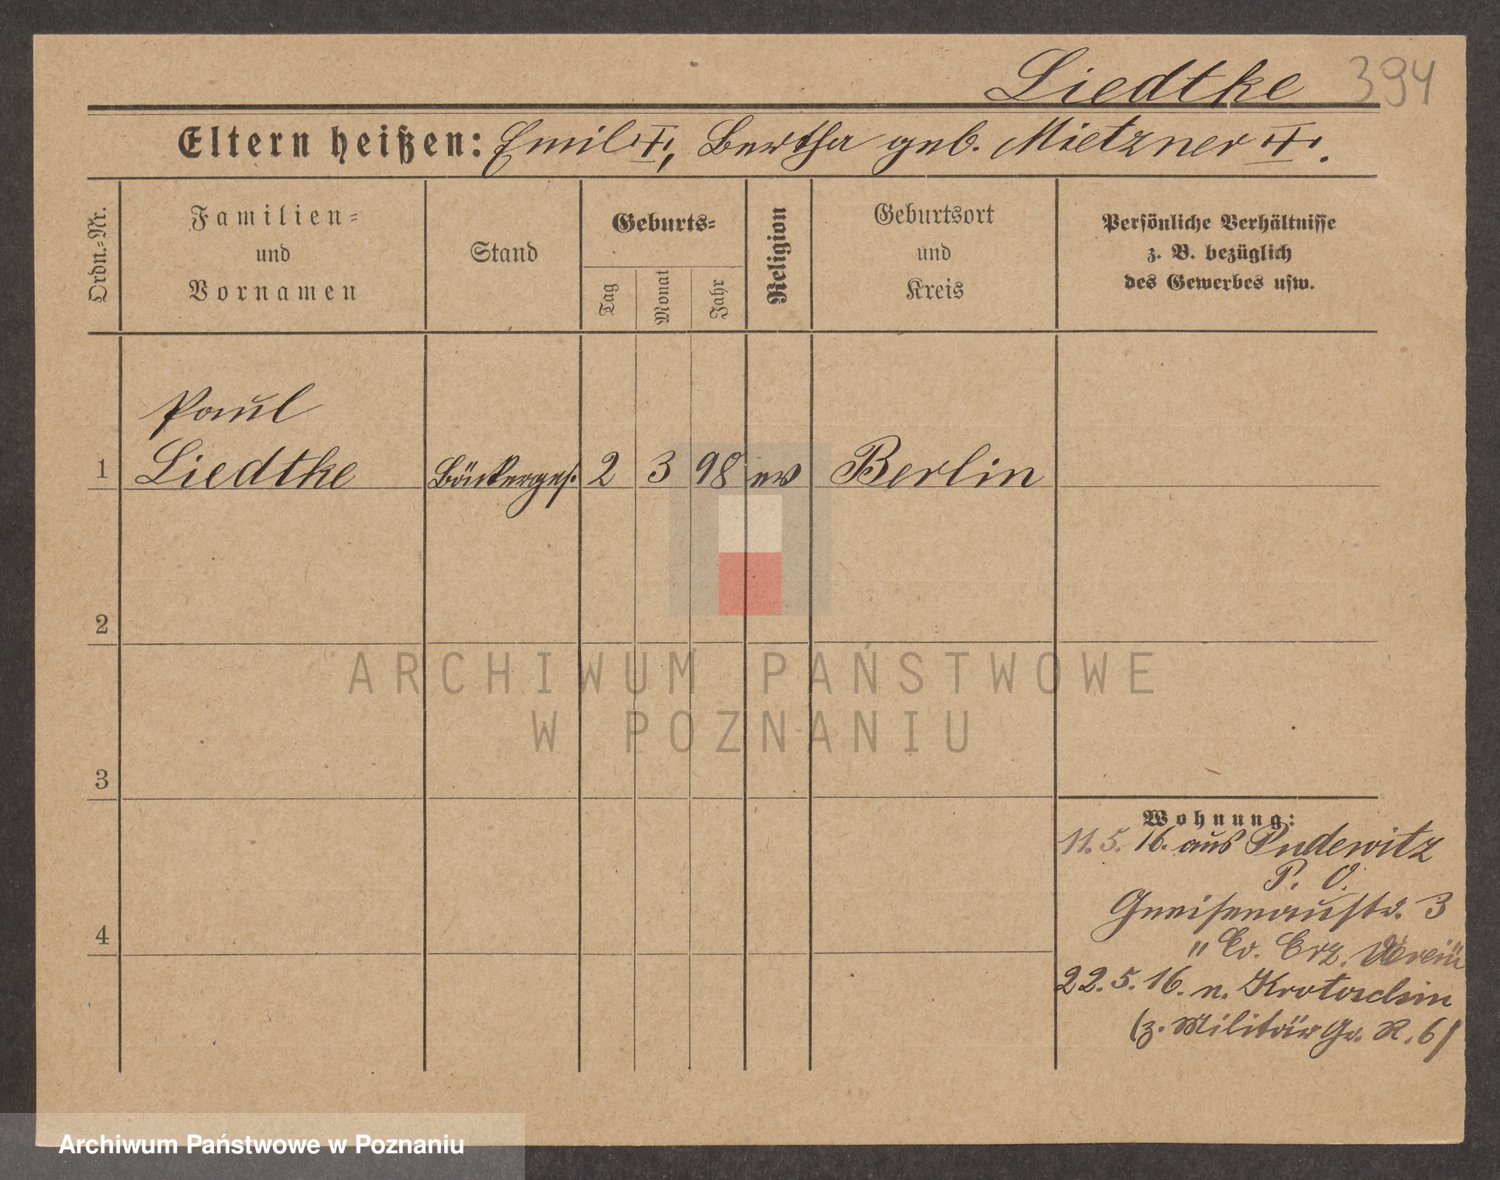 Liedtke 394
Eltern heißen: Emil †, Bertha geb. Mietzner †.
Ordn.=Nr.
Familien=
und
Vornamen
Stand
Geburts=
Tag
Monat
Jahr
Religion
Geburtsort
und
Kreis
Persönliche Verhältnisse
z. B. bezüglich
des Gewerbes usw.
Paul
1 Liedtke Bäckerges. 2 3 98 ev Berlin
2
3
4
Wohnung:
11.5.16. aus Pudewitz
P. O.
Gneisenaustr. 3
" Ev. Erz. Verein
22.5.16. n. Krotoschin
(z. Militär Gr. R. 6)
ARCHIWUM PAŃSTWOWE
W POZNANIU
Archiwum Państwowe w Poznaniu